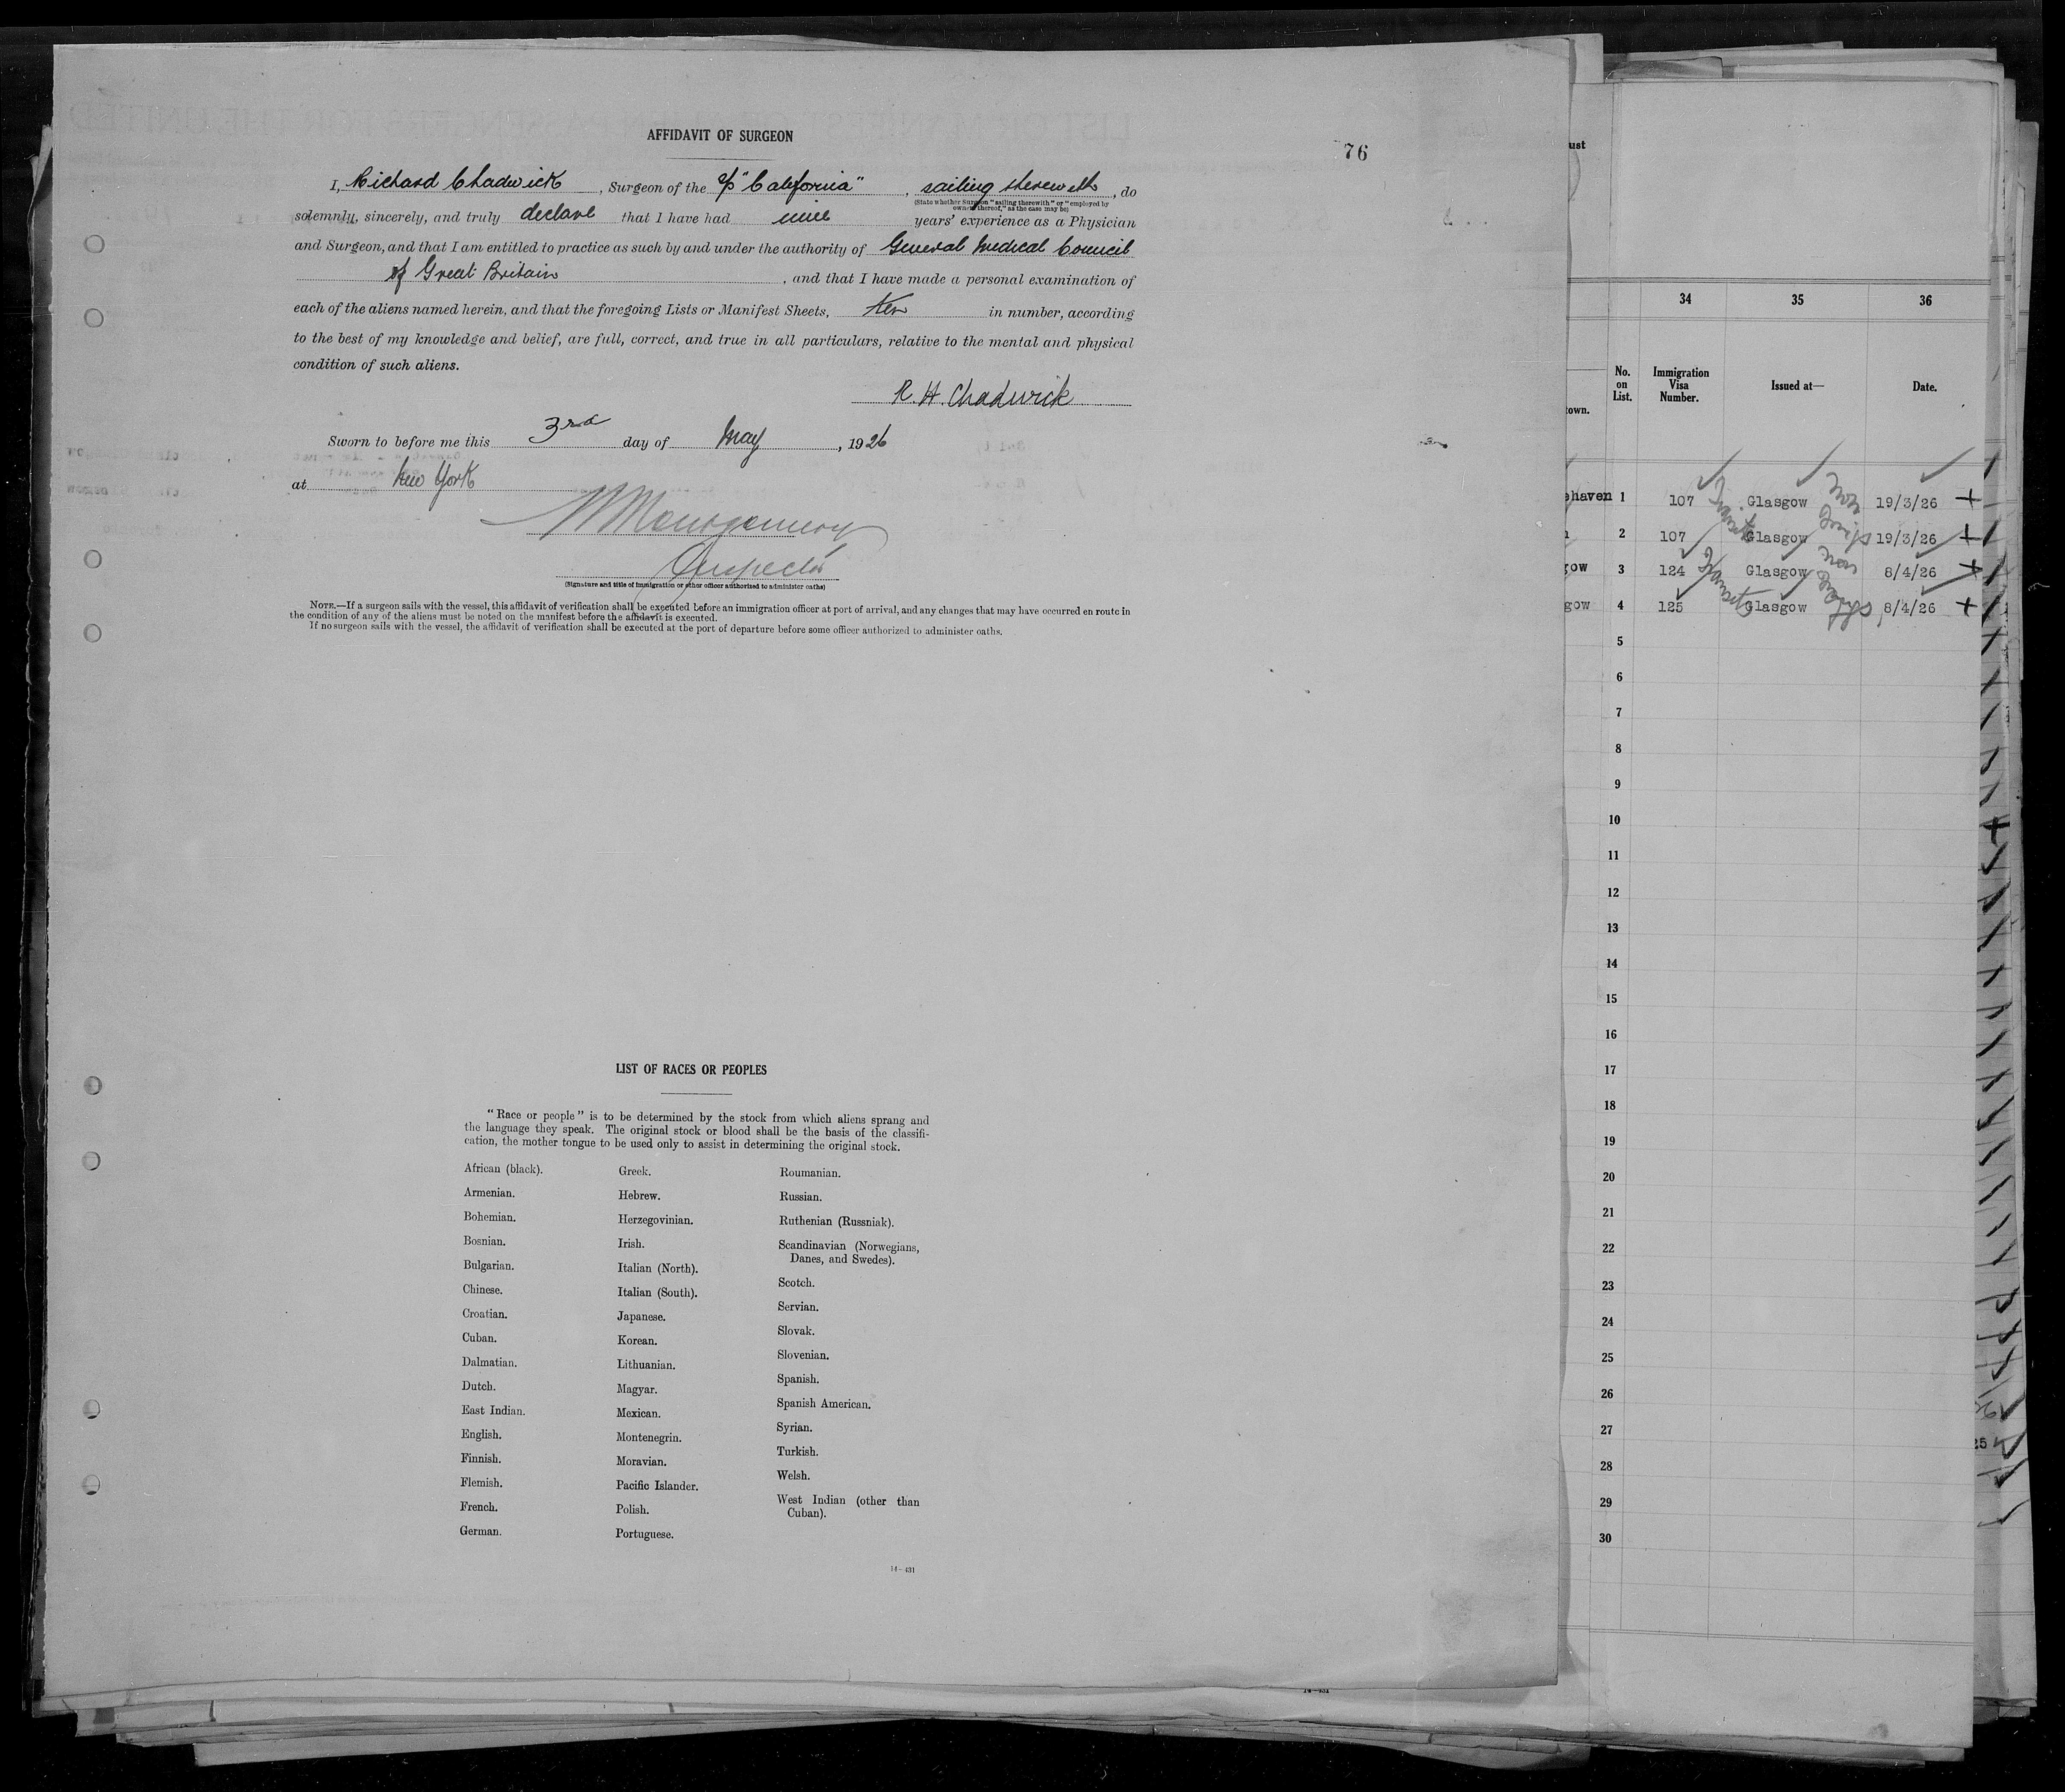 AFFIDAVIT OF SURGEON
76
I, Richard Chadwick, Surgeon of the S/S "California", sailing therewith, do
(State whether Surgeon "sailing therewith" or "employed by
owners thereof," as the case may be)
solemnly, sincerely, and truly declare that I have had nine years' experience as a Physician
and Surgeon, and that I am entitled to practice as such by and under the authority of General Medical Council
of Great Britain, and that I have made a personal examination of
each of the aliens named herein, and that the foregoing Lists or Manifest Sheets, ten in number, according
to the best of my knowledge and belief, are full, correct, and true in all particulars, relative to the mental and physical
condition of such aliens.
R. H. Chadwick
Sworn to before me this 3rd day of May, 1926
at New York
Montgomery
Inspector
(Signature and title of immigration or other officer authorized to administer oaths)
NOTE.—If a surgeon sails with the vessel, this affidavit of verification shall be executed before an immigration officer at port of arrival, and any changes that may have occurred en route in
the condition of any of the aliens must be noted on the manifest before the affidavit is executed.
If no surgeon sails with the vessel, the affidavit of verification shall be executed at the port of departure before some officer authorized to administer oaths.
LIST OF RACES OR PEOPLES
"Race or people" is to be determined by the stock from which aliens sprang and
the language they speak. The original stock or blood shall be the basis of the classifi-
cation, the mother tongue to be used only to assist in determining the original stock.
African (black).
Armenian.
Bohemian.
Bosnian.
Bulgarian.
Chinese.
Croatian.
Cuban.
Dalmatian.
Dutch.
East Indian.
English.
Finnish.
Flemish.
French.
German.
Greek.
Hebrew.
Herzegovinian.
Irish.
Italian (North).
Italian (South).
Japanese.
Korean.
Lithuanian.
Magyar.
Mexican.
Montenegrin.
Moravian.
Pacific Islander.
Polish.
Portuguese.
Roumanian.
Russian.
Ruthenian (Russniak).
Scandinavian (Norwegians,
Danes, and Swedes).
Scotch.
Servian.
Slovak.
Slovenian.
Spanish.
Spanish American.
Syrian.
Turkish.
Welsh.
West Indian (other than
Cuban).
14—431
ust
34 35 36
town.
No.
on
List.
Immigration
Visa
Number.
Issued at—
Date.
ehaven 1 107 Glasgow 19/3/26
2 107 Glasgow 19/3/26
gow 3 124 Glasgow 8/4/26
gow 4 125 Glasgow 8/4/26
5
6
7
8
9
10
11
12
13
14
15
16
17
18
19
20
21
22
23
24
25
26
27
28
29
30
25